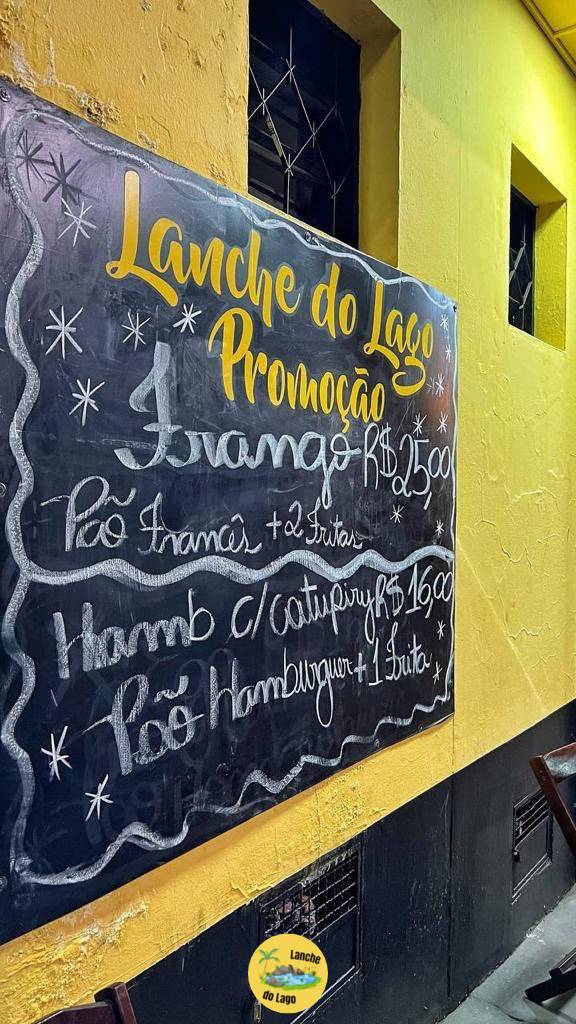 Lanche do Lago
Promoção
Frango R$25,00
Pão Francês +2 Fritas
Hamb c/catupiry R$16,00
Pão Hamburguer+1 Frita
Lanche
do Lago